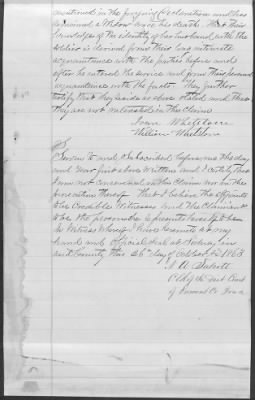 mentioned in the foregoing Declaration and has
remained a Widow since his death That their
knowledge of the identity of her husband with the
soldier is derived from their long intimate
acquaintance with the parties before and
after he entered the service and from their personal
acquaintance with the facts. They further
testify that they reside as above stated and that
they are not interested in this Claim
William
Sworn to and Subscribed before me the day
and year first above written and I certify that
I am not concerned in this Claim nor in the
prosecution thereof That I believe the affiants
to be Credible Witnesses and the Claimant
to be the person she represents herself to be
In Witness Whereof I have hereunto set my
hand and Official Seal at
said County this 26 day of October AD 1863
Clk of the Dist Court
of Co Iowa